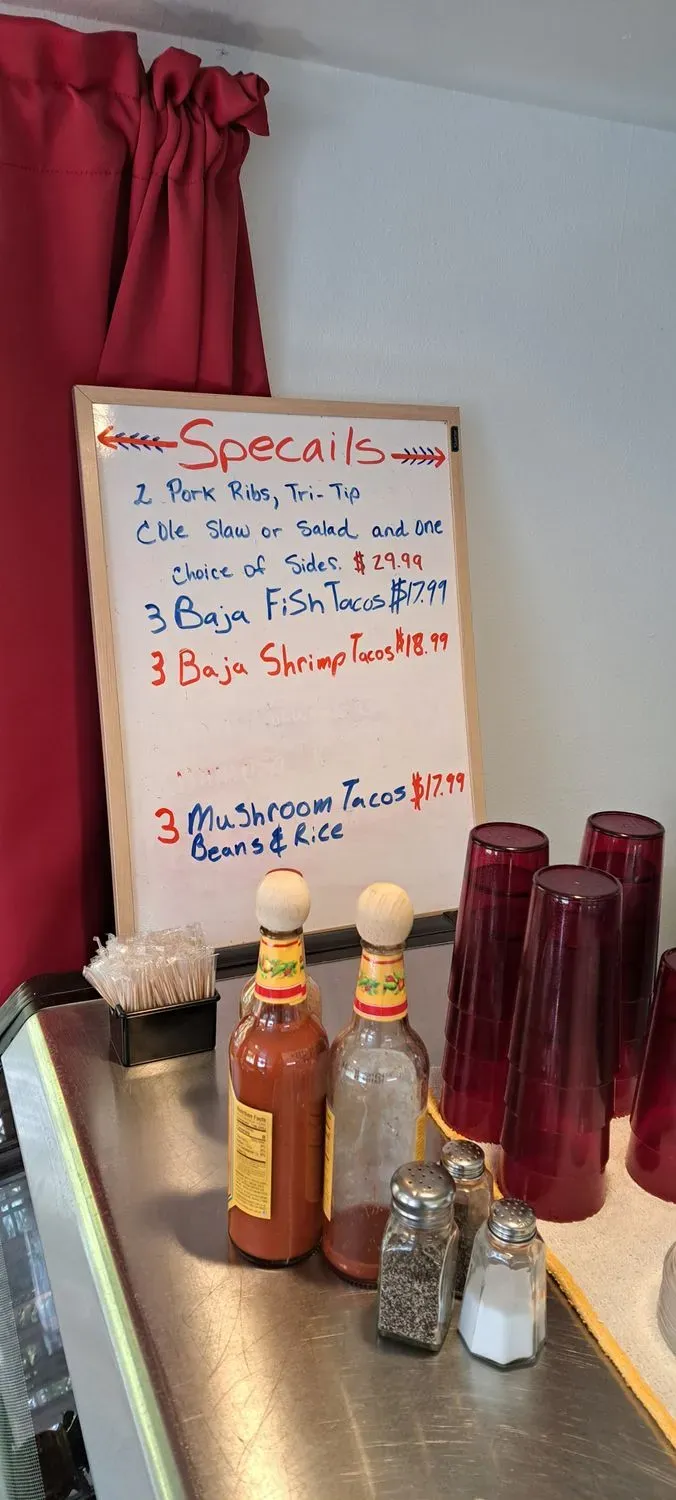 Specails
2 Pork Ribs, Tri-Tip
Cole Slaw or Salad and one
choice of Sides. $29.99
3 Baja FiSh Tacos $17.99
3 Baja Shrimp Tacos $18.99
3 Mushroom Tacos $17.99
Beans & Rice
Nutrition Facts